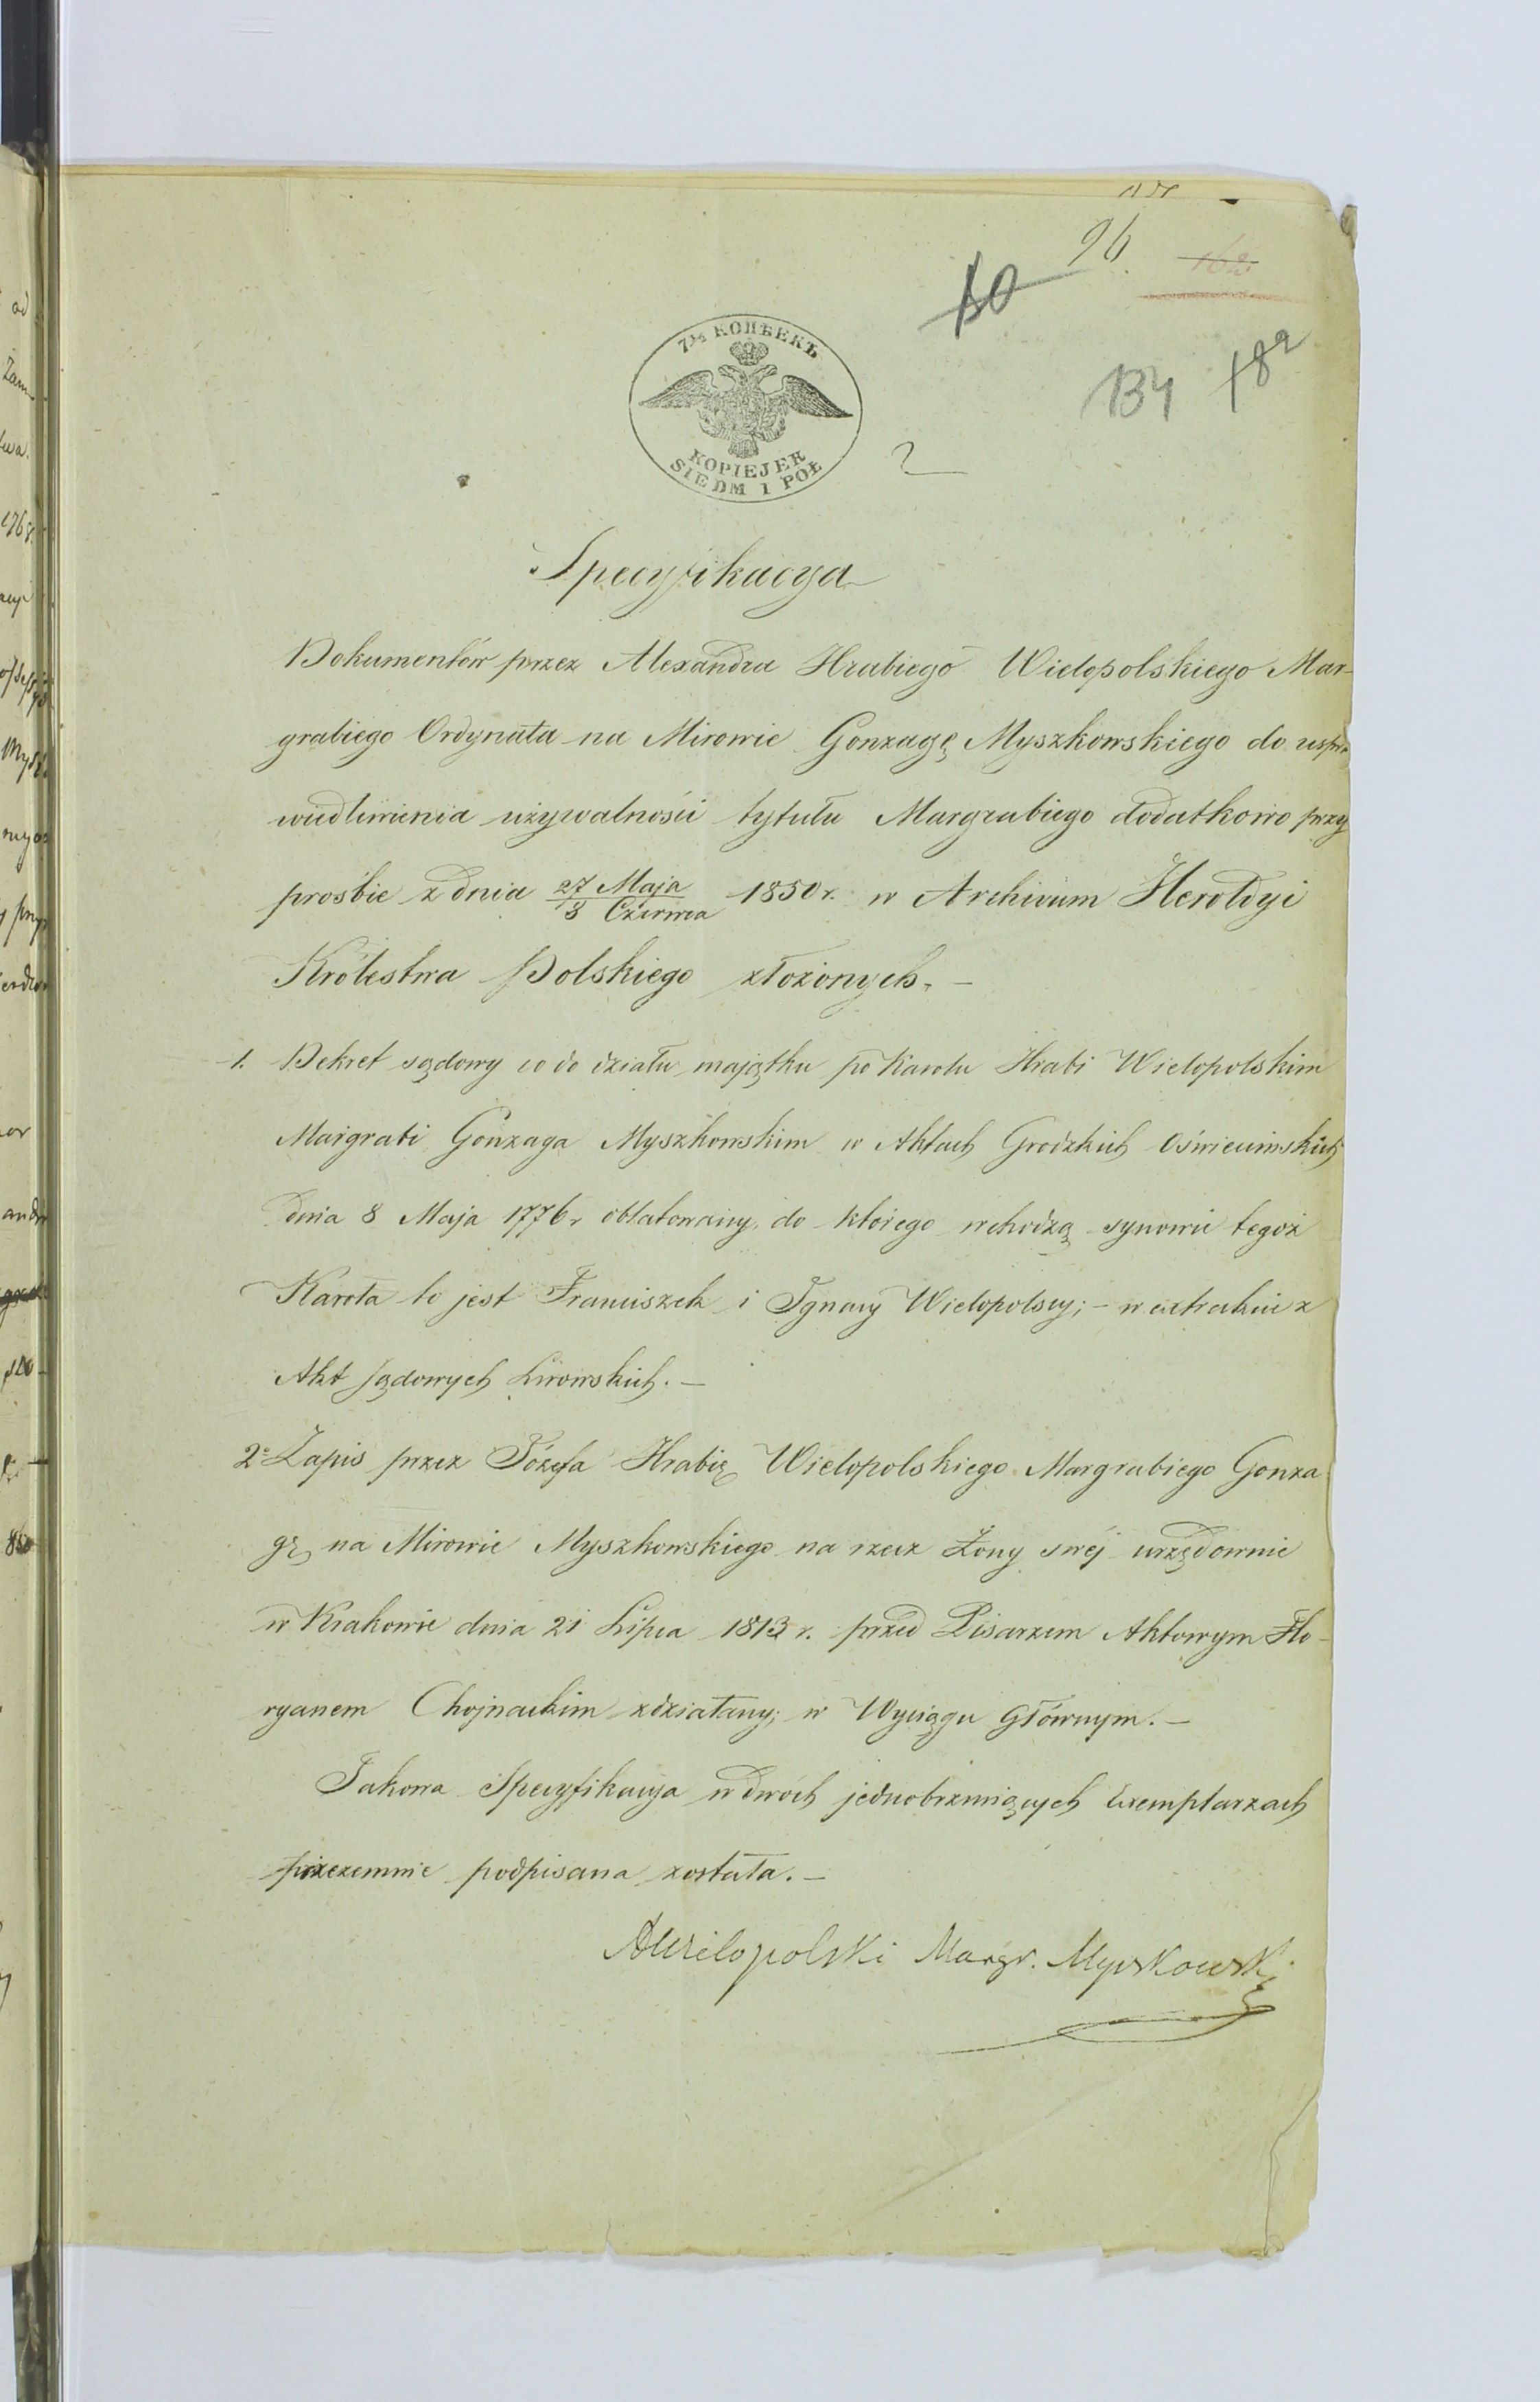 96
134
182
7½ КОПѢЕКЪ
KOPIEJEK
SIEDM I PÓŁ
2
Specyfikacya
Dokumentów przez Alexandra Hrabiego Wielopolskiego Mar-
grabiego Ordynata na Mirowie Gonzagę Myszkowskiego do uspra
wiedliwienia używalności tytułu Margrabiego dodatkowo przy
prośbie z dnia 27 Maja / 8 Czerwca 1850 r. w Archivum Heroldyi
Królestwa Polskiego złożonych. –
1. Dekret sądowy co do działu majątku po Karolu Hrabi Wielopolskim
Margrabi Gonzaga Myszkowskim w Aktach Grodzkich Oświecimskich
dnia 8 Maja 1776 r oblatowany, do którego wchodzą synowie tegoż
Karola to jest Franciszek i Ignacy Wielopolscy; – w extrakcie z
Akt sądowych Lwowskich. –
2º Zapis przez Józefa Hrabię Wielopolskiego Margrabiego Gonza
gę na Mirowie Myszkowskiego na rzecz Żony swéj urzędownie
w Krakowie dnia 21 Lipca 1813 r. przed Pisarzem Aktowym Flo-
ryanem Chojnackim zdziałany; w Wyciągu Głównym. –
Takowa Specyfikacya w dwóch jednobrzmiących Exemplarzach
przezemnie podpisana została. –
AWielopolski Margr. Myszkowski